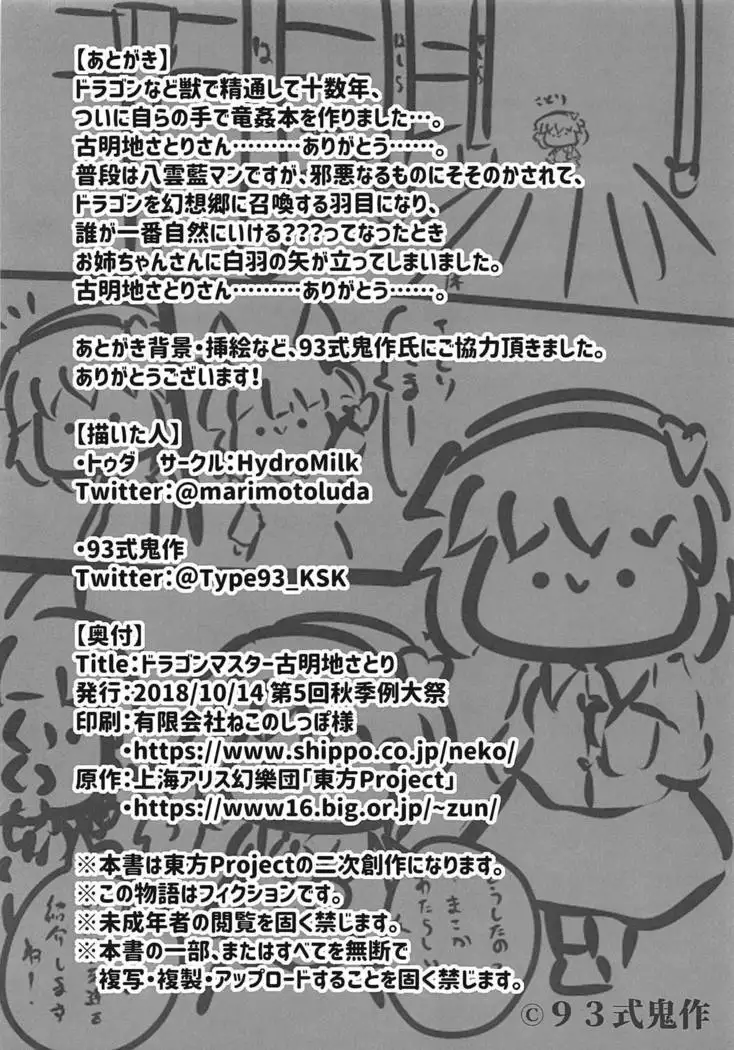 【あとがき】
ドラゴンなど獣で精通して十数年、
ついに自らの手で竜姦本を作りました…。
古明地さとりさん………ありがとう……。
普段は八雲藍マンですが、邪悪なるものにそそのかされて、
ドラゴンを幻想郷に召喚する羽目になり、
誰が一番自然にいける???ってなったとき
お姉ちゃんさんに白羽の矢が立ってしまいました。
古明地さとりさん………ありがとう……。
あとがき背景・挿絵など、93式鬼作氏にご協力頂きました。
ありがとうございます!
【描いた人】
・トゥダ　サークル:HydroMilk
Twitter:@marimotoluda
・93式鬼作
Twitter:@Type93_KSK
【奥付】
Title:ドラゴンマスター古明地さとり
発行:2018/10/14 第5回秋季例大祭
印刷:有限会社ねこのしっぽ様
・https://www.shippo.co.jp/neko/
原作:上海アリス幻樂団「東方Project」
・https://www16.big.or.jp/~zun/
※本書は東方Projectの二次創作になります。
※この物語はフィクションです。
※未成年者の閲覧を固く禁じます。
※本書の一部、またはすべてを無断で
複写・複製・アップロードすることを固く禁じます。
©93式鬼作
は
はしら
さとり
床
さとり
さまー
紹介します
ね!